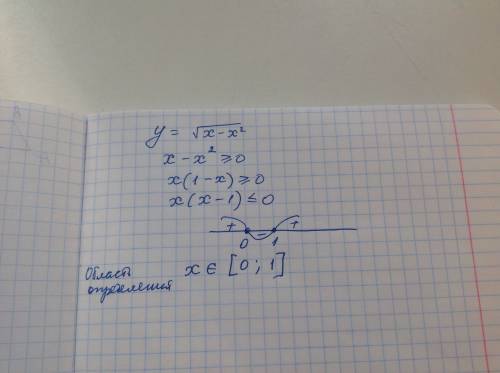 y = √(x-x²)
x - x² ≥ 0
x(1-x) ≥ 0
x(x-1) ≤ 0
+ - +
0 1
Область определения x ∈ [0; 1]